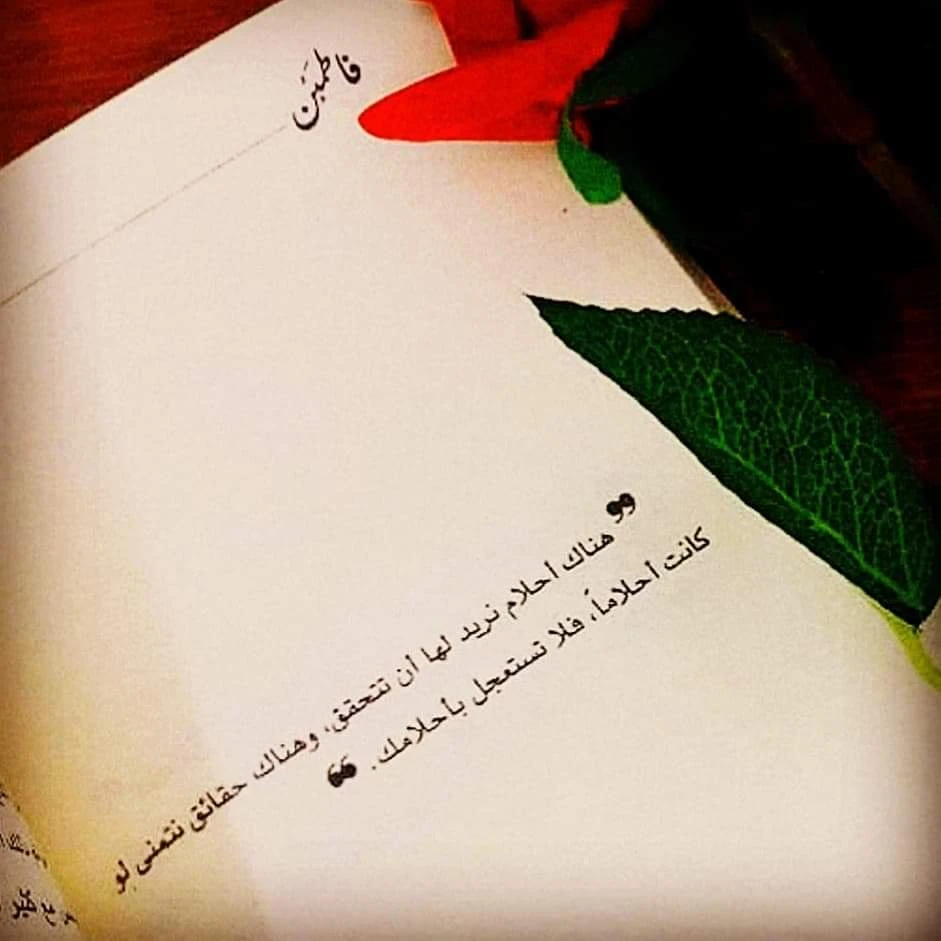 فاطمبَن
❞ هناك أحلام نريد لها أن تتحقق، وهناك حقائق نتمنى لو
كانت أحلاماً، فلا تستعجل بأحلامك. ❝